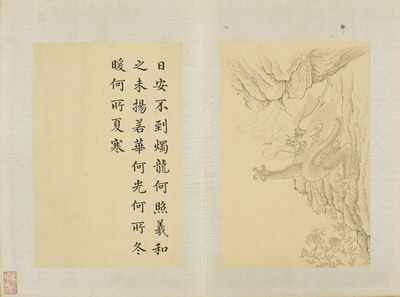 日安不到燭龍何照羲和
之未揚若華何光何所冬
暖何所夏寒